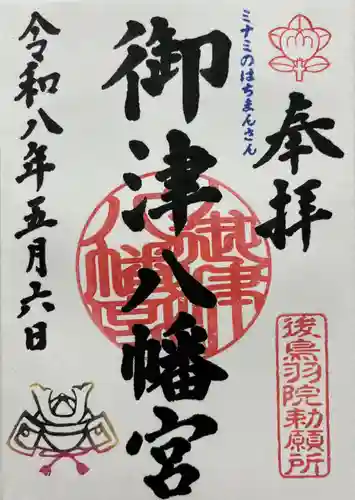 奉拝
ミナミのはちまんさん
御津八幡宮
御津八幡宮
後鳥羽院勅願所
令和八年五月六日